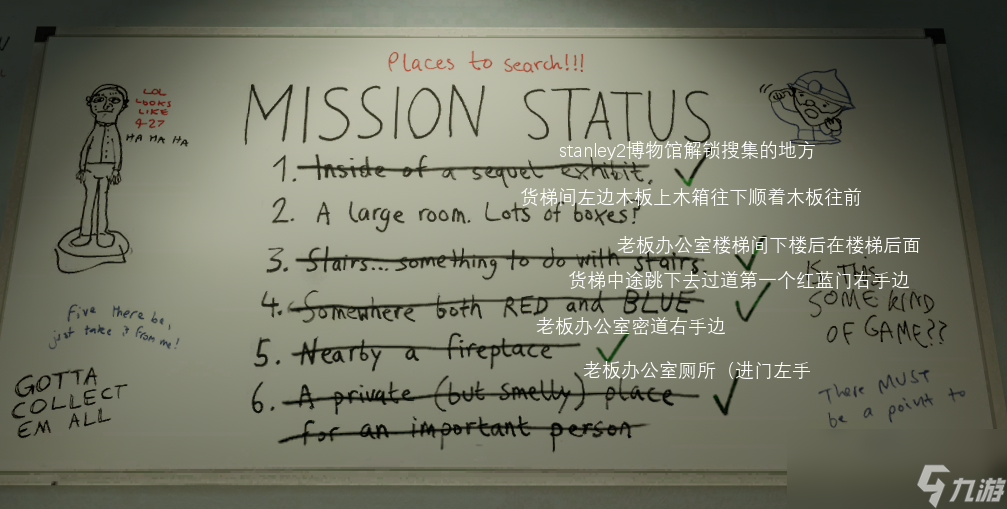 Places to search!!!
MISSION STATUS
LOL
LOOKS
LIKE
4-27
HA HA HA
stanley2博物馆解锁搜集的地方
1. Inside of a sequel exhibit.
货梯间左边木板上木箱往下顺着木板往前
2. A large room. Lots of boxes?
老板办公室楼梯间下楼后在楼梯后面
3. Stairs... something to do with stairs.
货梯中途跳下去过道第一个红蓝门右手边
4. Somewhere both RED and BLUE
老板办公室密道右手边
5. Nearby a fireplace
老板办公室厕所（进门左手
6. A private (but smelly) place
for an important person
Five there be,
just take it from me!
GOTTA
COLLECT
EM ALL
THIS
SOME KIND
OF GAME??
There MUST
be a point to
九游